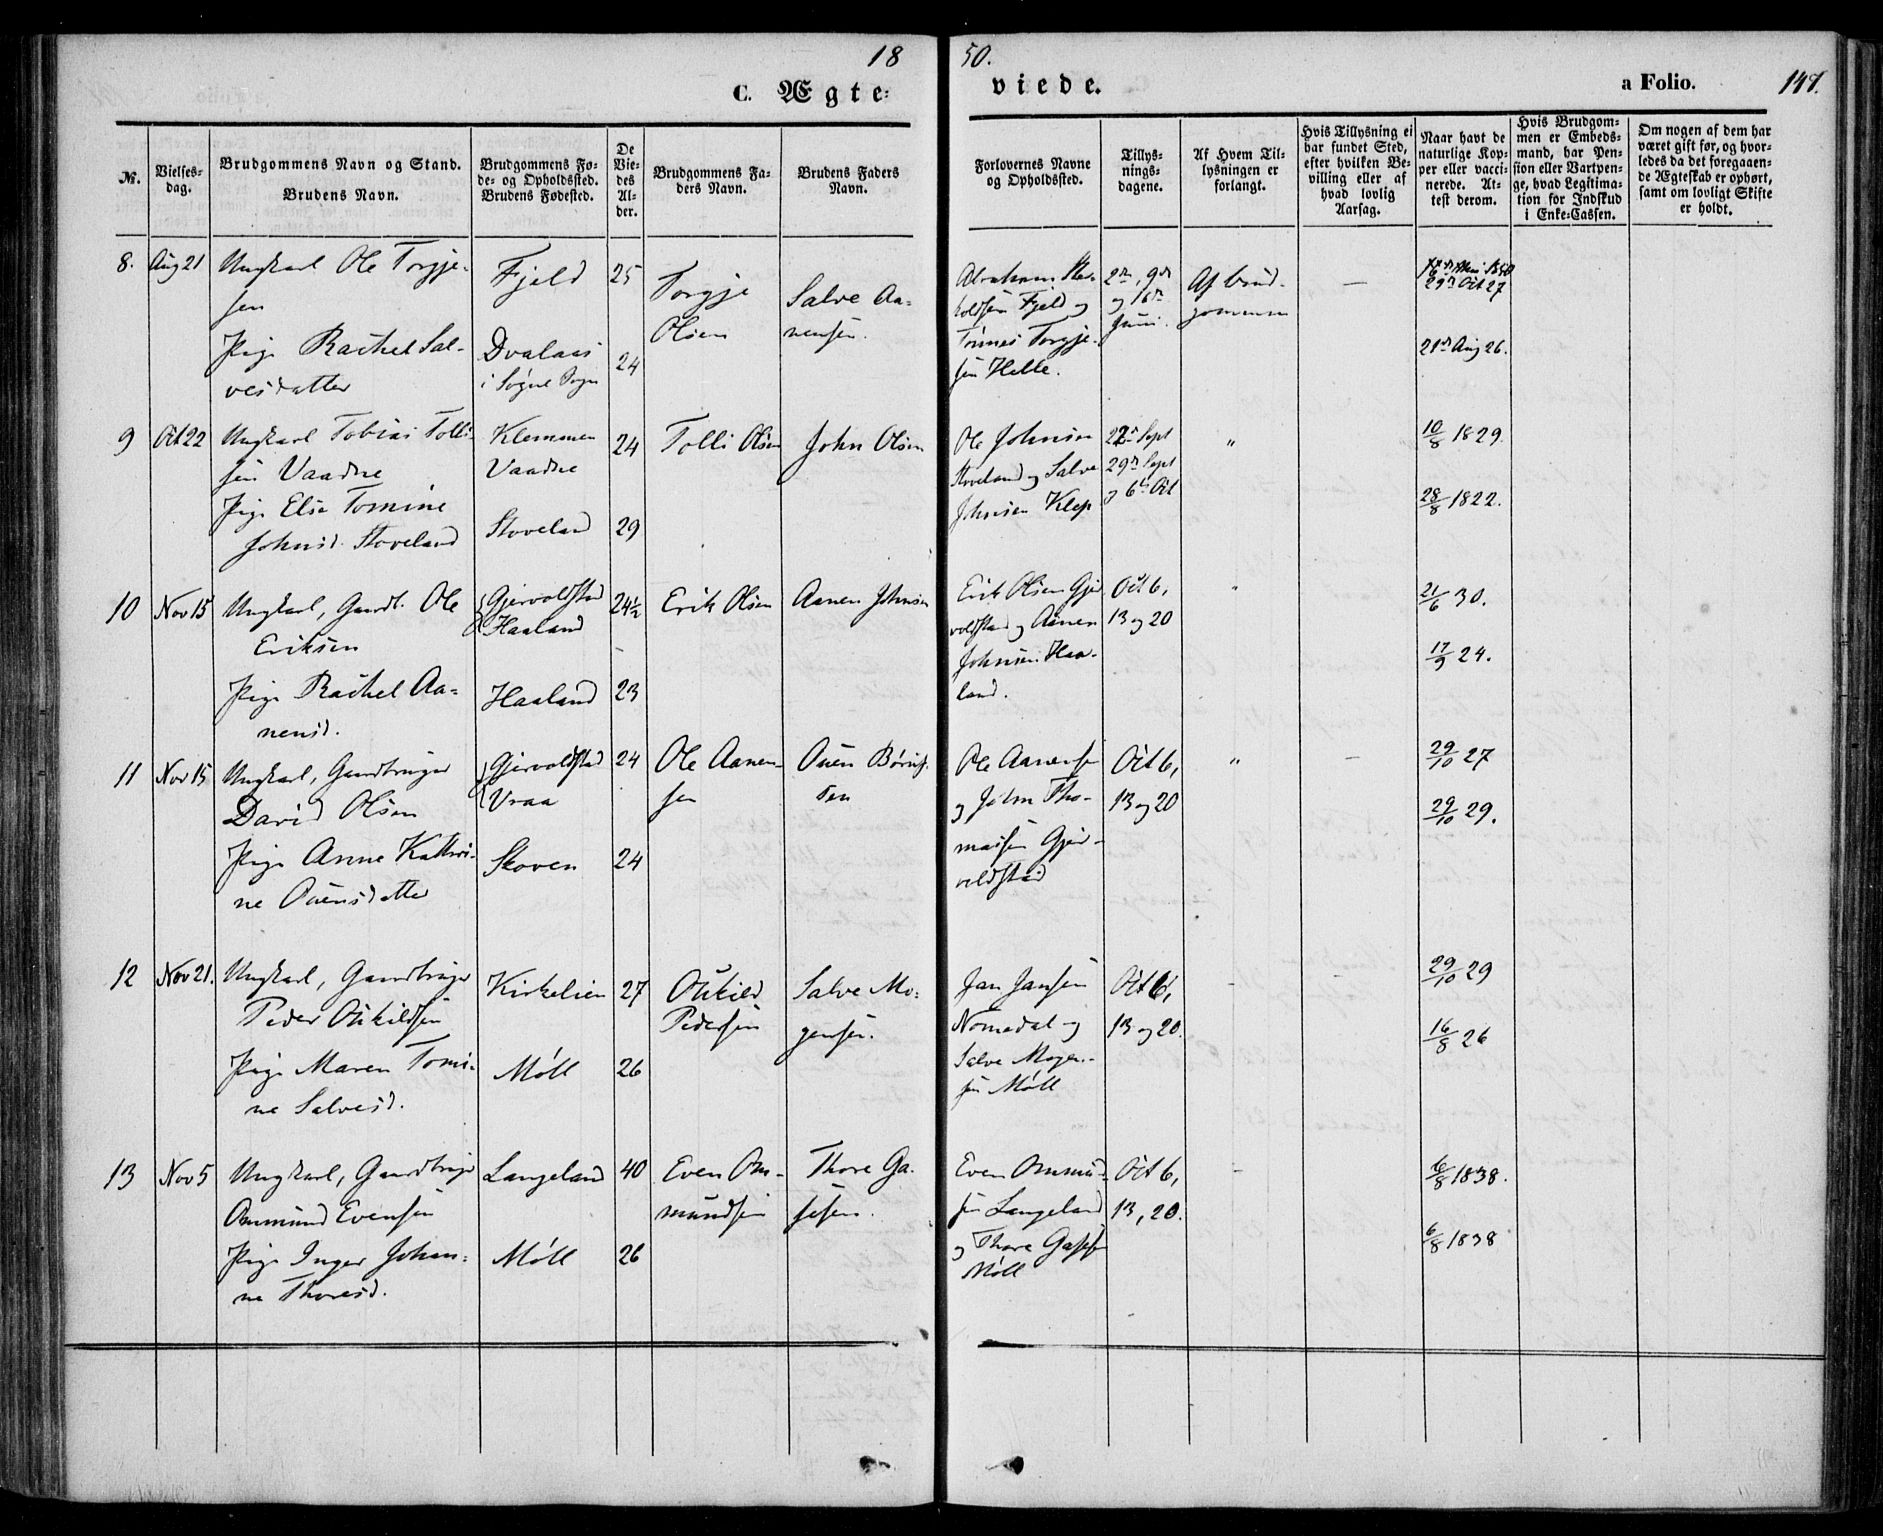 18 50.
C. Ægte= viede. a Folio. 147.
№.
Vielses=
dag.
Brudgommens Navn og Stand.
Brudens Navn.
Brudgommens Fø=
de= og Opholdssted.
Brudens Fødested.
De
Vie=
des
Al=
der.
Brudgommens Fa=
ders Navn.
Brudens Faders
Navn.
Forlovernes Navne
og Opholdssted.
Tillys=
nings=
dagene.
Af Hvem Til=
lysningen er
forlangt.
Hvis Tillysning ei
har fundet Sted,
efter hvilken Be=
villing eller af
hvad lovlig
Aarsag.
Naar havt de
naturlige Kop=
per eller vacci=
nerede. At=
test derom.
Hvis Brudgom=
men er Embeds=
mand, har Pen=
sion eller Vartpen=
ge, hvad Legitima=
tion for Indskud
i Enke=Cassen.
Om nogen af dem har
været gift før, og hvor=
ledes da det foregaaen=
de Ægteskab er ophørt,
samt om lovligt Skifte
er holdt.
8. Aug 21
Ungkarl Ole Torgje=
sen
Pige Rachel Sal=
vesdatter
Fjeld
Dvalaas
i Søgne Sogn
25
24
Torgje
Olsen
Salve Aa=
nensen.
Abraham
Fjeld og
Tønnes Torgje=
sen Helle.
2den, 9de
og 16de
Juni.
Af Brud=
gommen
—
29de Oct 27
21de Aug 26.
9 Oct 22
Ungkarl Tobias Tolli=
sen Vaadne
Pige Else Tomine
Johnsd. Stoveland
Klemmen
Vaadne
Stoveland
24
29
Tolli Olsen
John Olsen
Ole Johnsen
Stoveland og Salve
Johnsen Klep
22de Sept
29de Sept
og 6te Oct
"
10/8 1829.
28/8 1822.
10 Nov 15
Ungkarl, Gaardb. Ole
Eriksen
Pige Rachel Aa=
nensd.
Gjervoldstad
Haaland
Haaland
24½
23
Erik Olsen
Aanen Johnsen
Erik Olsen Gjer
voldstad og Aanen
Johnsen Haa=
land.
Oct 6,
13 og 20
"
21/6 30.
17/9 24.
11 Nov 15
Ungkarl, Gaardbruger
David Olsen
Pige Anne Kathri=
ne Ouensdatter
Gjervoldstad
Vraa
Skoven
24
24
Ole Aanen=
sen
Ouen Børuf=
sen
Ole Aanensen
og John Tho=
massen Gjer=
voldstad
Oct 6,
13 og 20
"
—
29/10 27
29/10 29.
12 Nov 21.
Ungkarl, Gaardbruger
Peder Oukildsen
Pige Maren Tomi=
ne Salvesd.
Kirkelien
Møll
27
26
Oukild
Pedersen
Salve Mo=
gensen.
Jan Jansen
Nomedal og
Salve Mogen=
sen Møll
Oct 6,
13 og 20.
29/10 29
16/8 26
13 Nov 5
Ungkarl, Gaardbruger
Ommund Evensen
Pige Inger Johan=
ne Thoresd.
Langeland
Møll
40
26
Even Om=
mundsen
Thore Ga=
sesen.
Even Ommund=
sen Langeland
og Thore
Møll
Oct 6,
13, 20.
6/8 1838.
6/8 1838